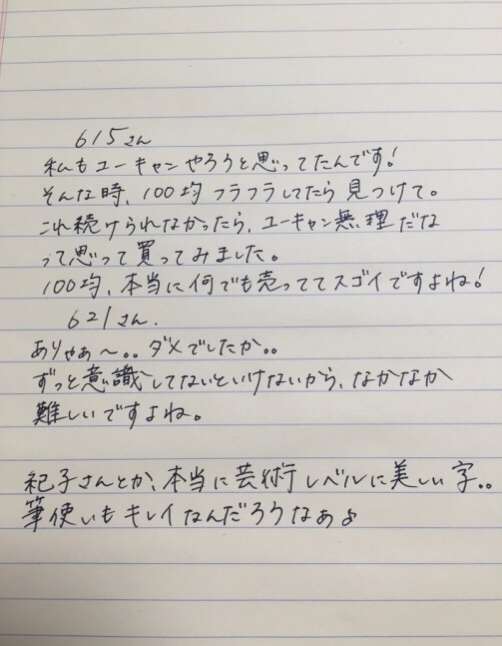 615さん
私もユーキャンやろうと思ってたんです!
そんな時、100均フラフラしてたら見つけて。
これ続けられなかったら、ユーキャン無理だな
って思って買ってみました。
100均、本当に何でも売っててスゴイですよね!
621さん.
ありゃぁ〜。。ダメでしたか。。
ずっと意識してないといけないから、なかなか
難しいですよね。
紀子さんとか、本当に芸術レベルに美しい字。。
筆使いもキレイなんだろうなぁ♪